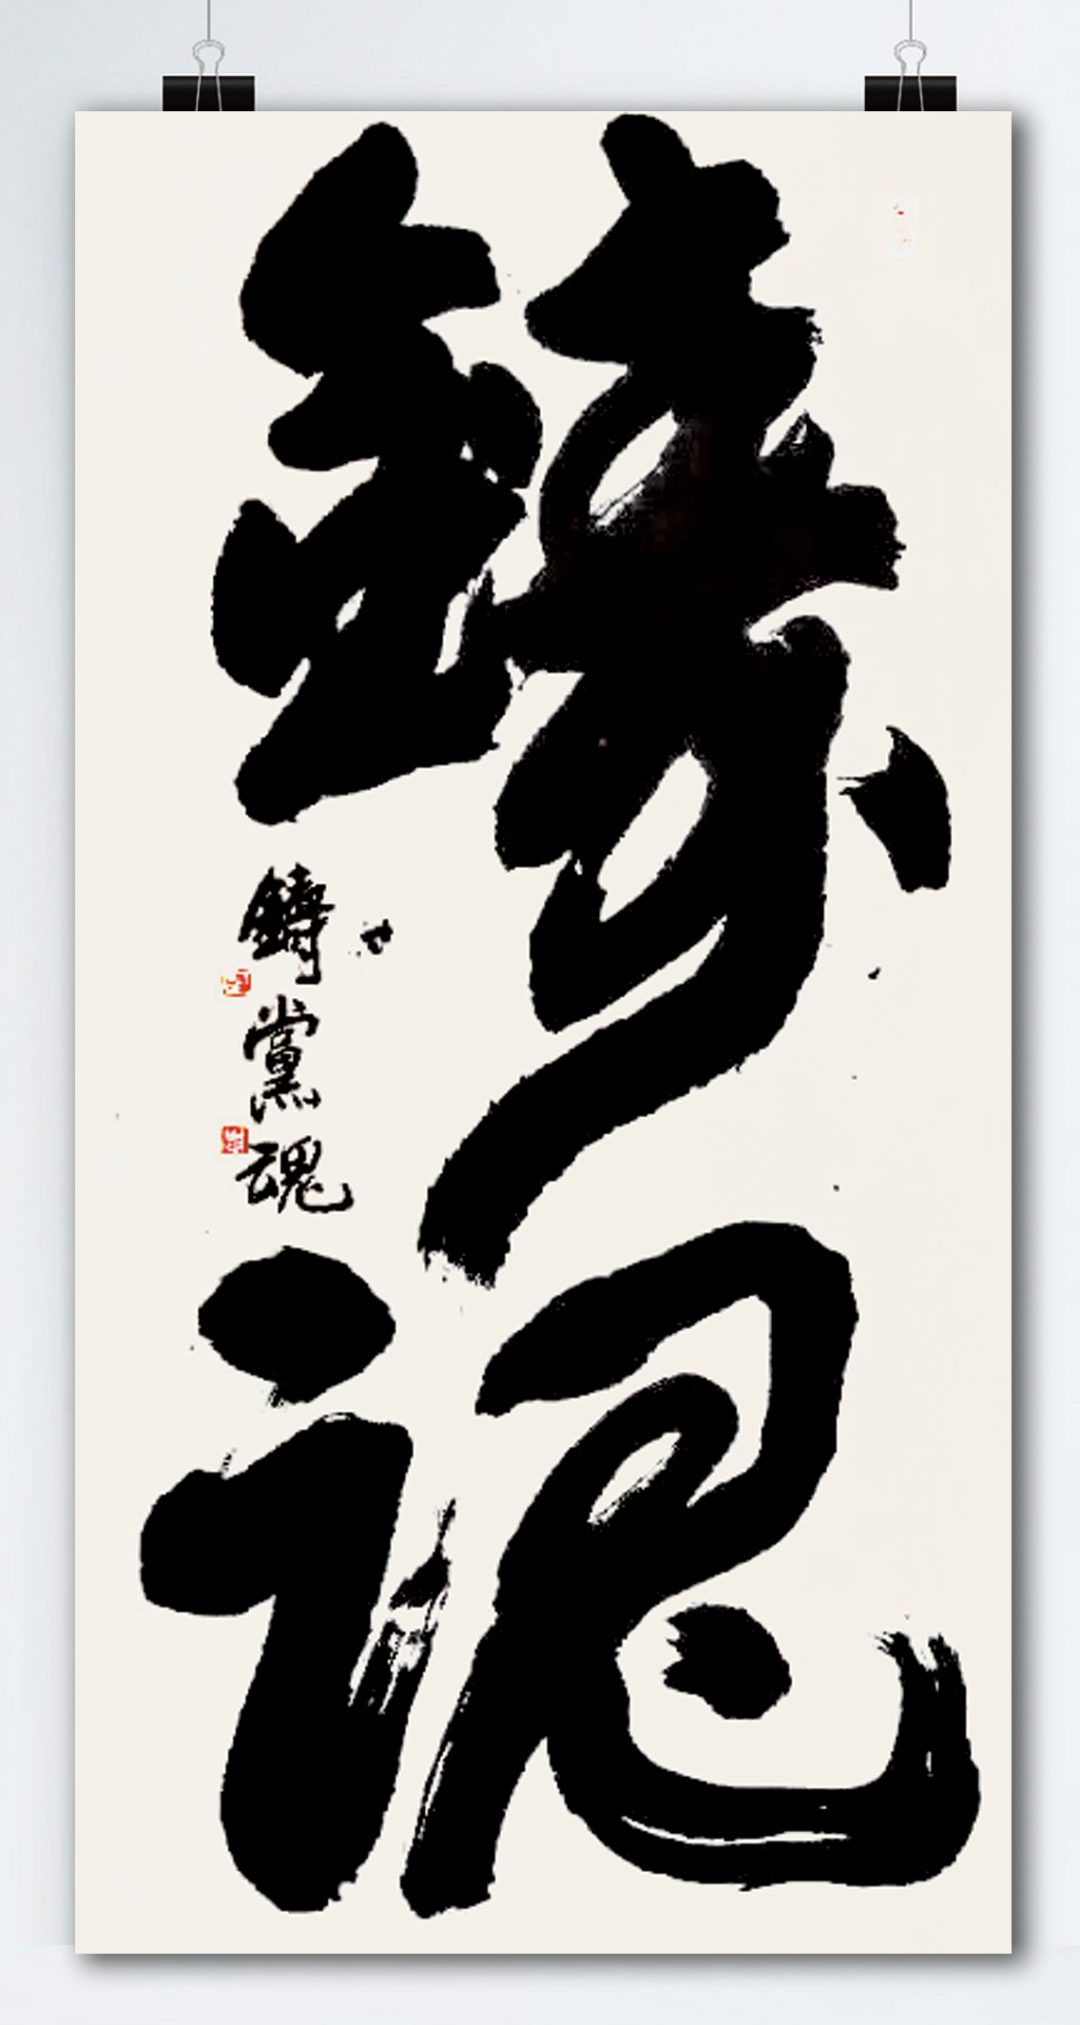 鑄魂
鑄黨魂